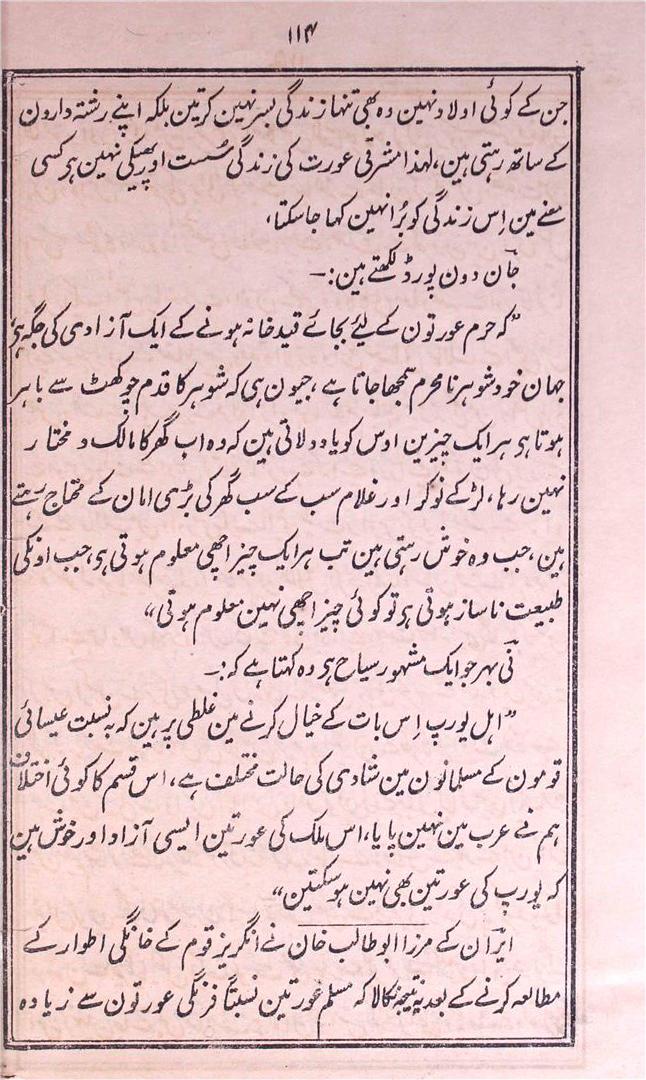 ۱۱۴
جن کے کوئی اولاد نہین وہ بھی تنہا زندگی بسر نہین کرتین بلکہ اپنے رشتہ دارون
کے ساتھ رہتی ہین، لہذا مشرقی عورت کی زندگی سُست اور پھیکی نہین ہر کسی
معنے مین اِس زندگی کو بُرا نہین کہا جا سکتا،
جان دون پورڈ لکھتے ہین:—
”کہ حرم عورتون کے لئے بجائے قید خانہ ہونے کے ایک آزادی کی جگہ ہی
جہان خود شوہر نامحرم سمجھا جاتا ہے، جیون ہی کہ شوہر کا قدم چوکھٹ سے باہر
ہوتا ہی ہر ایک چیزین اوس کو یاد دلاتی ہین کہ وہ اب گھر کا مالک و مختار
نہین رہا، لڑکے نوکر اور غلام سب کے سب گھر کی بڑی امان کے محتاج رہتے
ہین، جب وہ خوش رہتی ہین تب ہر ایک چیز اچھی معلوم ہوتی ہی، جب اونکی
طبیعت ناساز ہوتی ہی تو کوئی چیز اچھی نہین معلوم ہوتی“
نی بہر جو ایک مشہور سیاح ہی وہ کہتا ہے کہ:—
”اہل یورپ اِس بات کے خیال کرنے مین غلطی پر ہین کہ بہ نسبت عیسائی
قومون کے مسلمانون مین شادی کی حالت مختلف ہے، اس قسم کا کوئی اختلاف
ہم نے عرب مین نہین پایا، اس ملک کی عورتین ایسی آزاد اور خوش ہین
کہ یورپ کی عورتین بھی نہین ہو سکتین“
ایران کے مرزا ابو طالب خان نے انگریز قوم کے خانگی اطوار کے
مطالعہ کرنے کے بعد یہ نتیجہ نکالا کہ مسلم عورتین نسبتاً فرنگی عورتون سے زیادہ